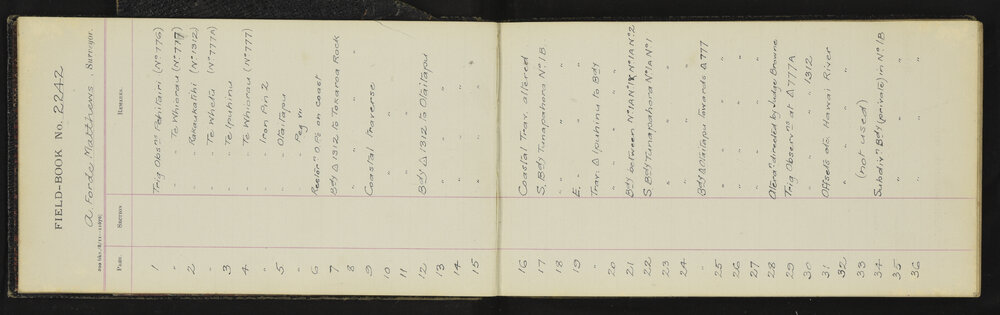 FIELD-BOOK No. 2242
A. Forde Matthews, Surveyor.
PAGE. SECTION REMARKS.
1 Trig Obsns Pohitairi (No 776)
" " Te Whiorau (No 777)
2 " Rakaukatihi (No 1312)
" " Te Wheta (No 777A)
3 " Te Ipuhinu
4 " Te Whiorau (No 777)
" " Iron Pin 2
5 " Otaitapu
" " Peg VII
6 Restorn O.Ps on coast
7 Bdy Δ 1312 to Tokaroa Rock
8 " "
9 Coastal Traverse
10 " "
11 " "
12 Bdy Δ 1312 to Otaitapu
13 "
14 "
15 "
16 Coastal Trav. altered
17 S. Bdy Tunapahora No 1B
18 " " "
19 E. " "
" Trav. Δ Ipuhinu to Bdy
20 " "
21 Bdy between No 1A No 1 & No 1A No 2
22 S. Bdy Tunapahora No 1A No 1
23 " "
24 " "
" Bdy Δ Otaitapu Towards Δ 777
25 " "
26 " "
27 " "
28 Alterns directed by Judge Browne
29 Trig Observns at Δ 777A
30 " " 1312
31 Offsets etc. Hawai River
32 " "
33 (not used)
34 Subdivn Bdy (private) in No 1B
35 " "
36 " "